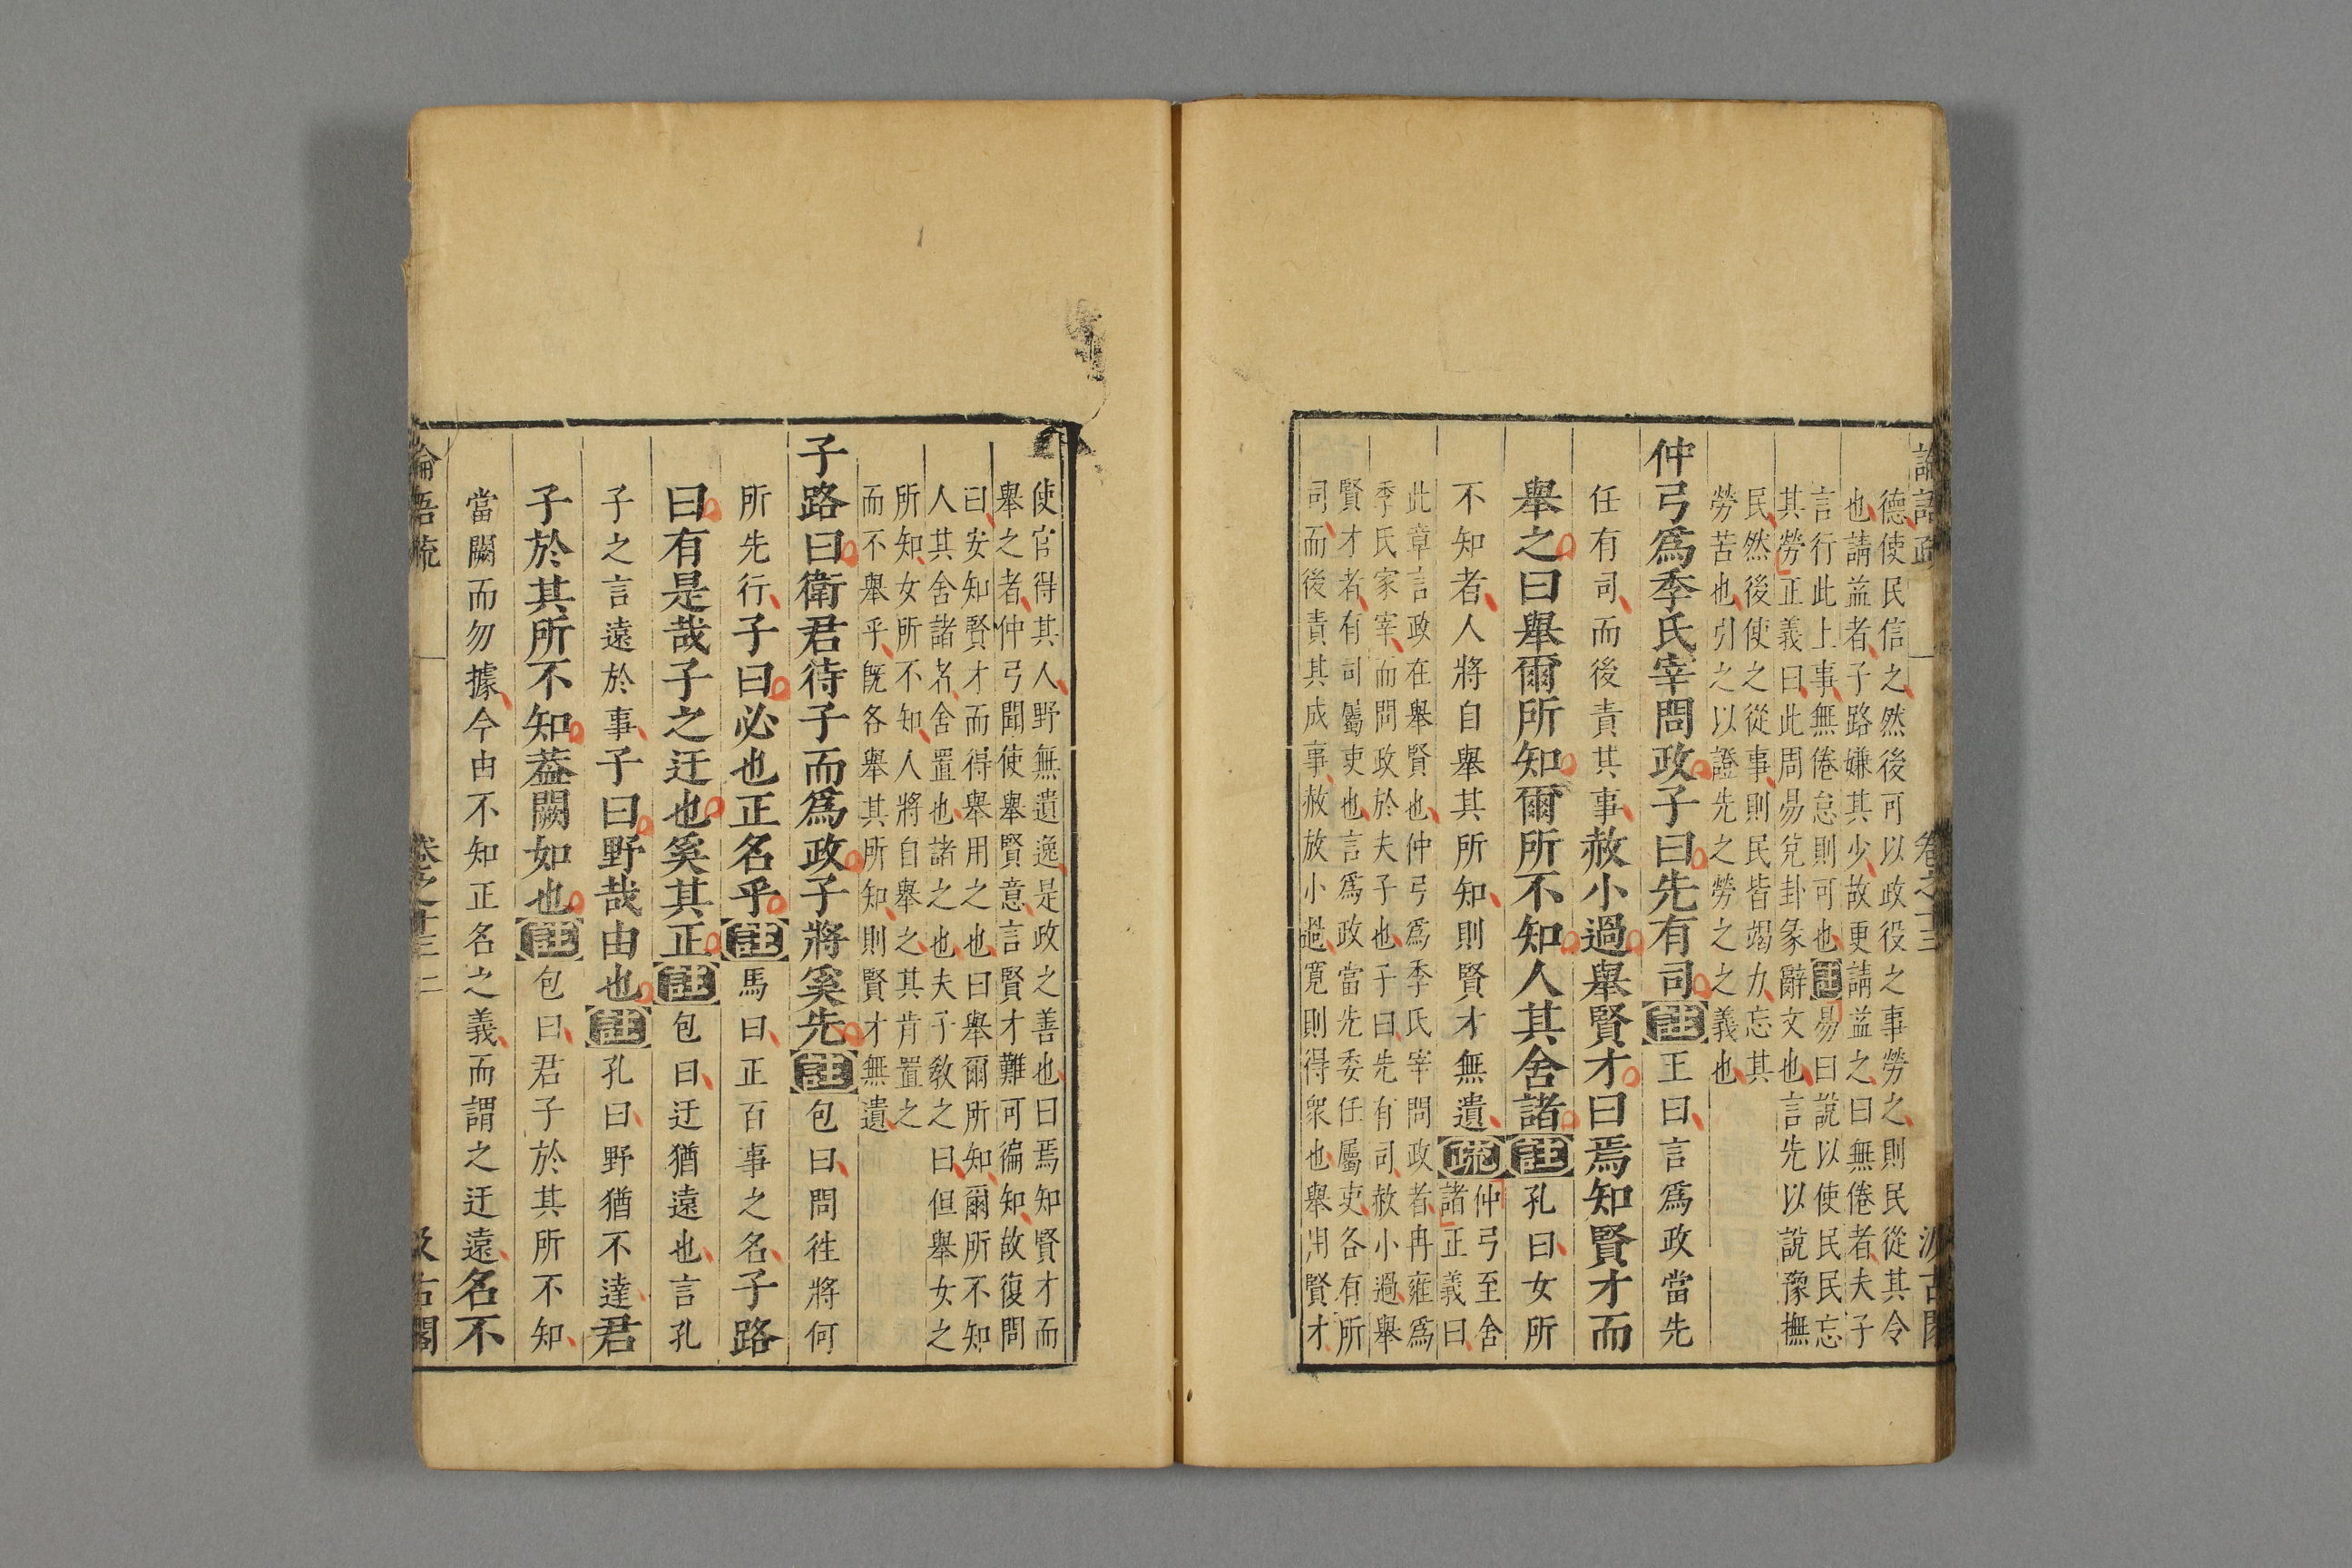 論語疏 卷之十三 汲古閣
德使民信之然後可以政役之事勞之則民從其令
也請益者子路嫌其少故更請益之曰無倦者夫子
言行此上事無倦怠則可也註易曰說以使民民忘
其勞正義曰此周易兌卦彖辭文也言先以說豫撫
民然後使之從事則民皆竭力忘其
勞苦也引之以證先之勞之之義也
仲弓爲季氏宰問政子曰先有司註王曰言爲政當先
任有司而後責其事赦小過舉賢才曰焉知賢才而
舉之曰舉爾所知爾所不知人其舍諸註孔曰女所
不知者人將自舉其所知則賢才無遺疏仲弓至舍
諸正義曰
此章言政在舉賢也仲弓爲季氏宰問政者冉雍爲
季氏家宰而問政於夫子也子曰先有司赦小過舉
賢才者有司屬吏也言爲政當先委任屬吏各有所
司而後責其成事赦放小過寬則得衆也舉用賢才
使官得其人野無遺逸是政之善也曰焉知賢才而
舉之者仲弓聞使舉賢意言賢才難可徧知故復問
曰安知賢才而得舉用之也曰舉爾所知爾所不知
人其舍諸者舍置也諸之也夫子敎之曰但舉女之
所知女所不知人將自舉之其肯置之
而不舉乎旣各舉其所知則賢才無遺
子路曰衛君待子而爲政子將奚先註包曰問徃將何
所先行子曰必也正名乎註馬曰正百事之名子路
曰有是哉子之迂也奚其正註包曰迂猶遠也言孔
子之言遠於事子曰野哉由也註孔曰野猶不達君
子於其所不知葢闕如也註包曰君子於其所不知
當闕而勿據今由不知正名之義而謂之迂遠名不
論語疏 卷之十三 二 汲古閣